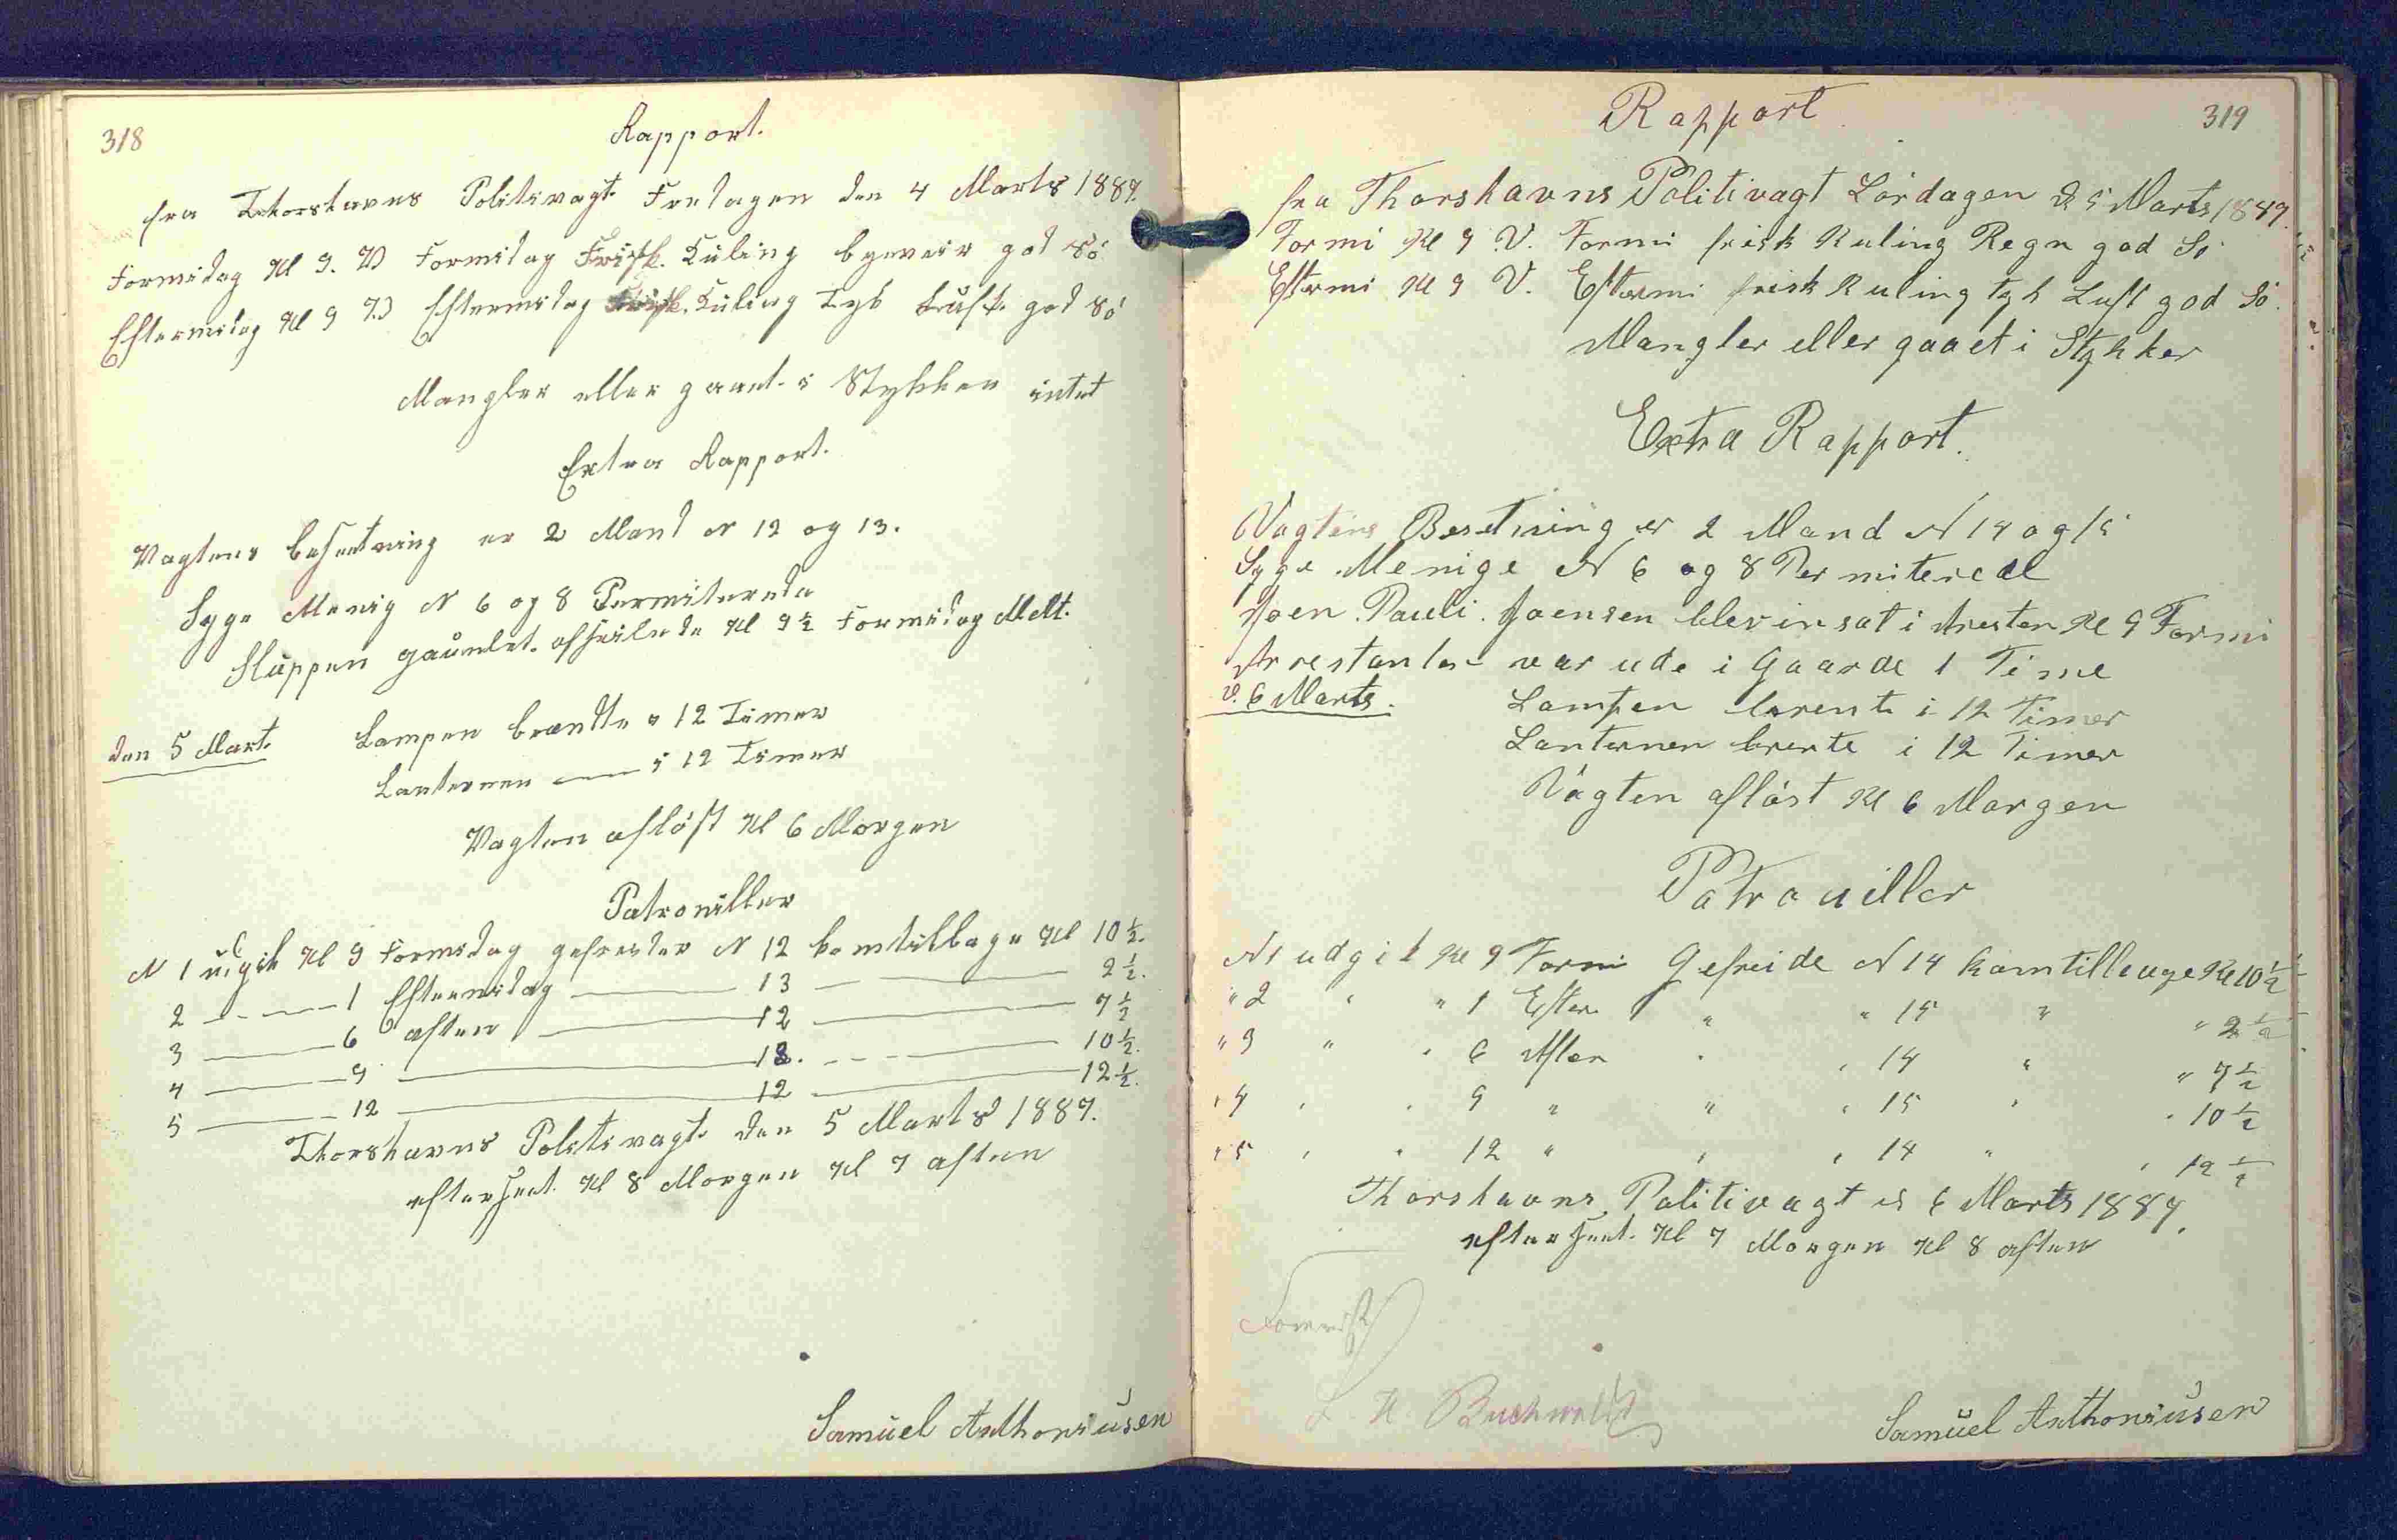 318
Rapport.
fra Thorshavns Politivagt Fredagen den 4 Marts 1887.
Formidag Kl 9. V Formidag Frisk. Kuling byeveir god Sö
Eftermidag Kl 9 V Eftermidag Frisk. Kuling Tyk Luft. god Sö
Mangler eller gaaet i Stykker intet
Extra Rapport.
Vagtens besætning er 2 Mand N 12 og 13.
Syge Menig N 6 og 8 Permiterede
Sluppen gaümlet. afseilede Kl 9½ Formidag Mdt.
den 5 Mart. Lampen brændte i 12 Timer
Lanternen — i 12 Timer
Vagten aflöst Kl 6 Morgen
Patrouiller
N 1 udgik Kl 9 Formidag gefreider N 12 komtilbage Kl 10½.
2 — 1 Eftermidag — 13 — 2½.
3 — 6 aften — 12 — 7½
4 — 9 — 13. — 10½.
5 — 12 — 12 — 12½.
Thorshavns Politivagt den 5 Marts 1887.
efterseet. Kl 8 Morgen Kl 7 aften
Samüel Anthoniüsen
Rapport
319
fra Thorshavns Politivagt Lördagen d 5 Marts 1887.
Formi Kl 9 V. Formi frisk Kuling Regn god Sö
Eftermi Kl 9 V. Eftermi frisk Kuling tyk Luft god Sö.
Mangler eller gaaet i Stykker
Extra Rapport.
Vagtens Besetning er 2 Mand N 14 og 15
Syge Menige N 6 og 8 Permitered
Joen. Pauli. Joensen blev insat i Aresten Kl 9 Formi
Arrestanten var ude i Gaarde 1 Time
d. 6 Marts. Lampen brente i 12 Timer
Lanternen brente i 12 Timer
Vagten aflöst Kl 6 Morgen
Patrouiller
N 1 udgik Kl 9 Formi Gefreide N 14 kom tilbage Kl 10½
" 2 " " 1 Efter " " 15 " " 2½
" 3 " " 6 Aften " " 14 " " 7½
" 4 " " 9 " " " 15 " " 10½
" 5 " " 12 " " " 14 " " 12½
Thorshavns Politivagt d 6 Marts 1887.
efterseet. Kl 7 Morgen Kl 8 aften
Forevist
Buchwaldt
Samüel Anthoniüsen